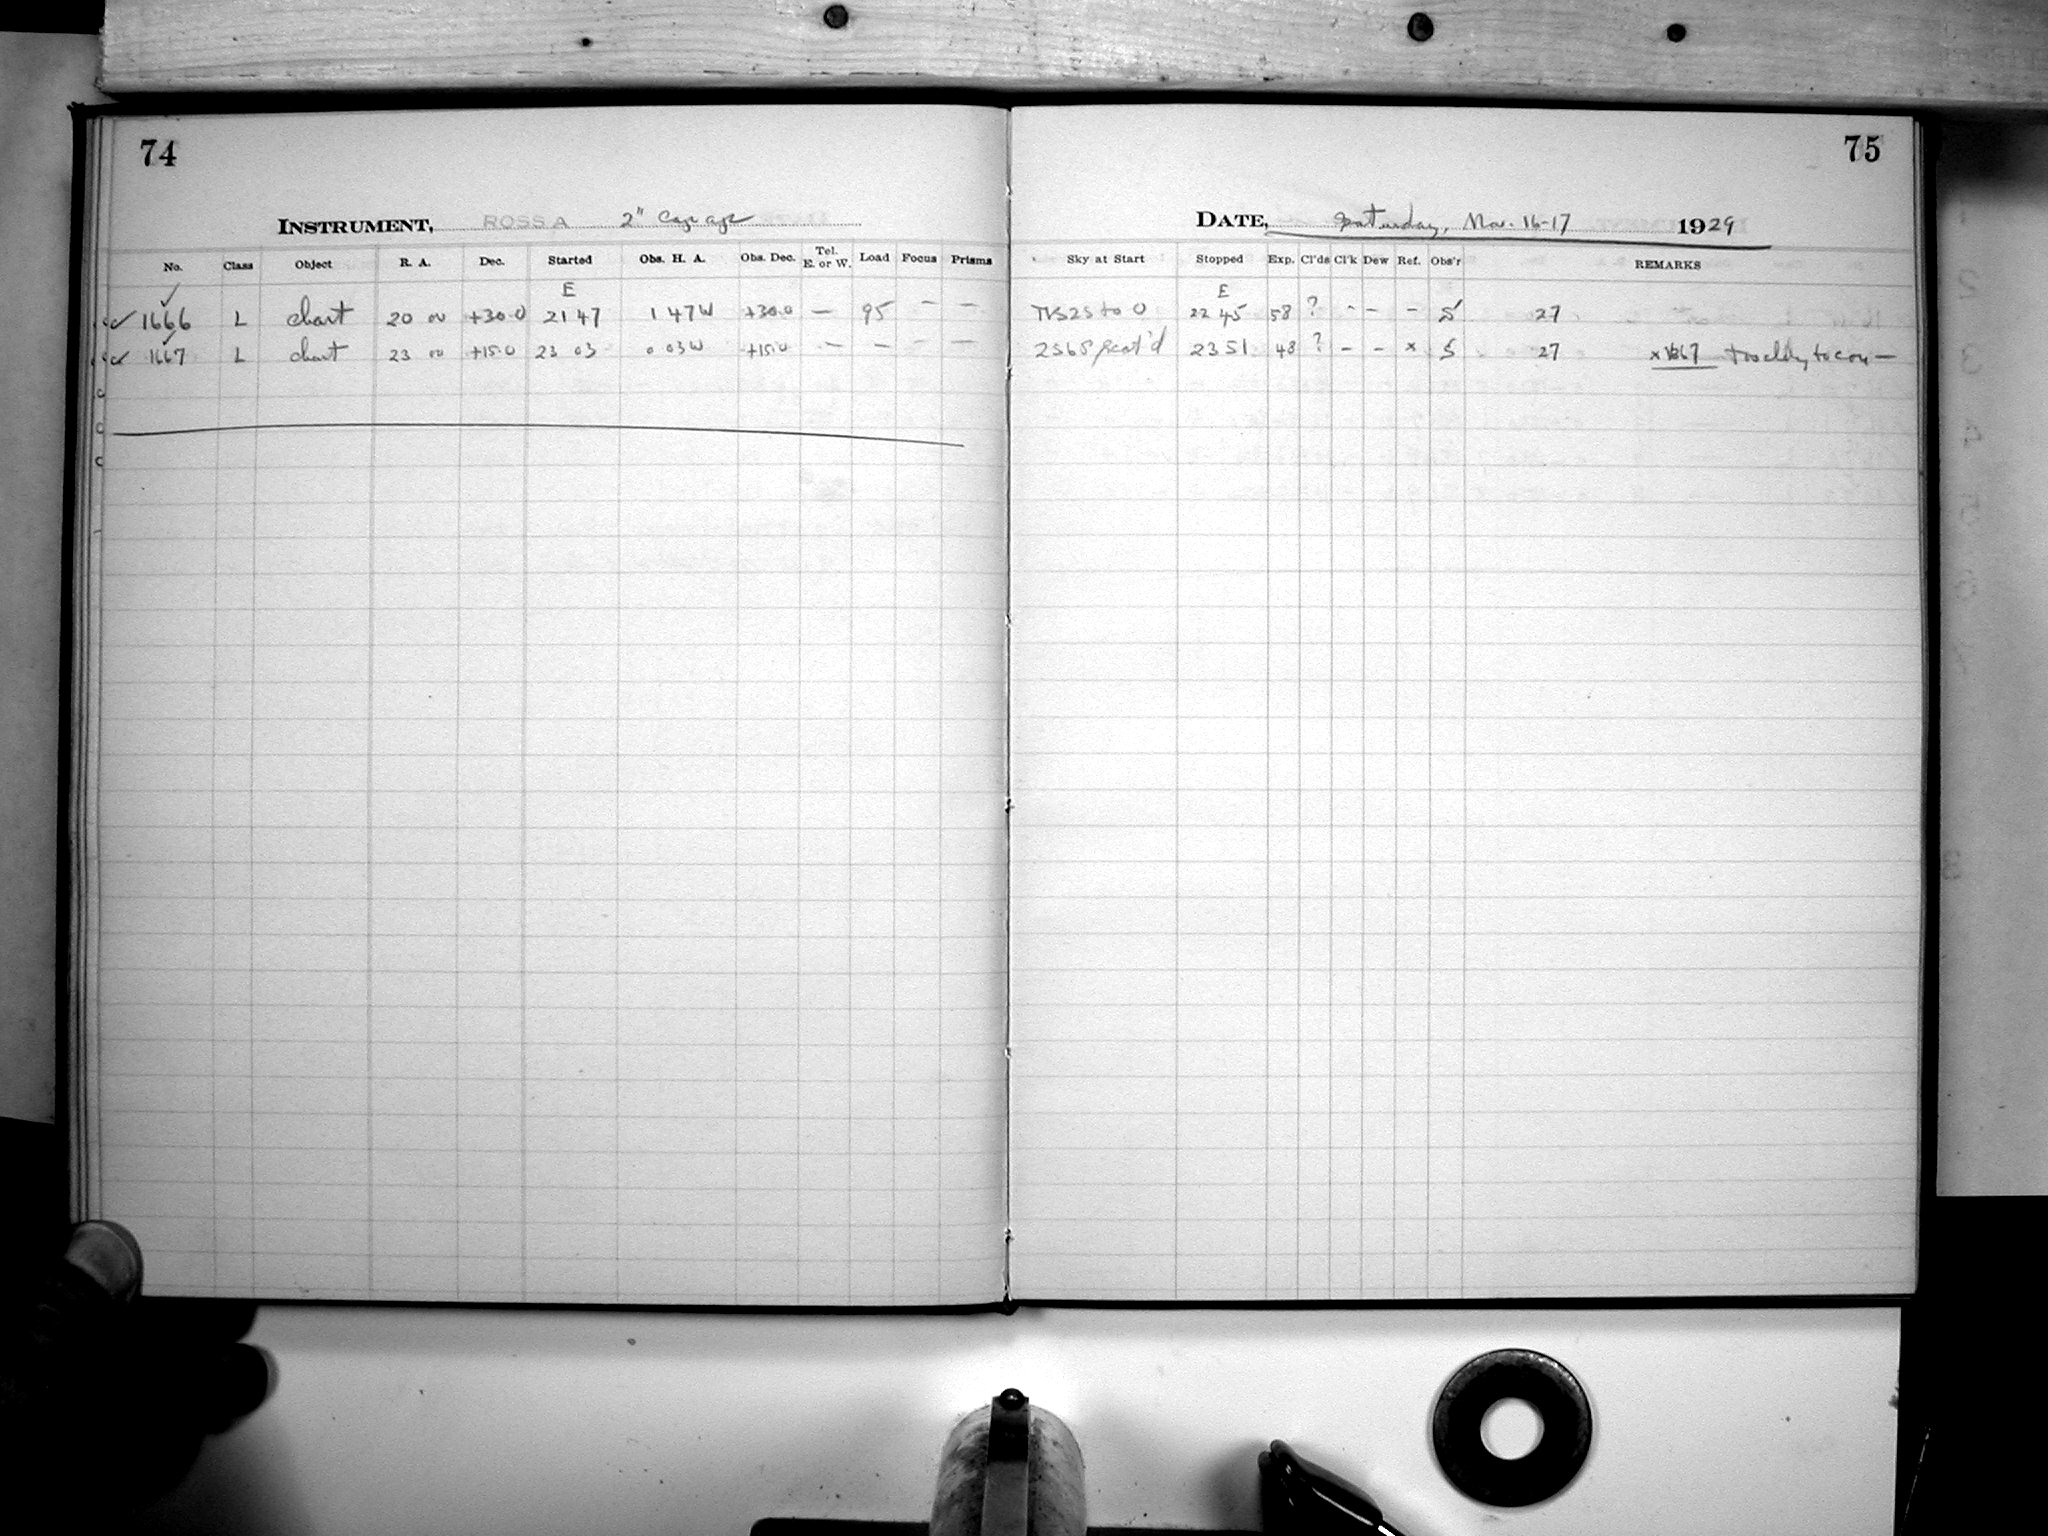 74
75
INSTRUMENT, ROSS A 2" Cap ap
DATE, Saturday, Nov. 16-17 1929
No. Class Object R. A. Dec. Started Obs. H. A. Obs. Dec. Tel. E. or W. Load Focus Prisms Sky at Start Stopped Exp. Cl'ds Cl'k Dew Ref. Obs'r REMARKS
E E
✓ 1666 L chart 20 00 +30.0 21 47 1 47W +30.0 — 95 — — to 0 22 45 58 ? - - - S 27
✓ 1667 L chart 23 00 +15.0 23 03 0 03W +15.0 — — — — scat'd 23 51 48 ? - - x S 27 too cldy to con —